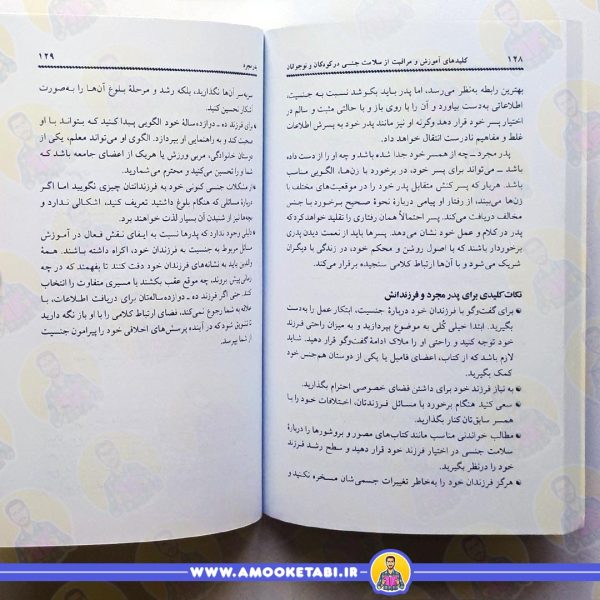 ۱۲۸ کلیدهای آموزش و مراقبت از سلامت جنسی در کودکان و نوجوانان
بهترین رابطه به‌نظر می‌رسد، اما پدر باید بکوشد نسبت به جنسیت،
اطلاعاتی به‌دست بیاورد و آن را با روی باز و با حالتی مثبت و سالم در
اختیار پسر خود قرار دهد وگرنه او نیز مانند پدر به پسرش اطلاعات
غلط و مفاهیم نادرست انتقال خواهد داد.
پدر مجرد ــ چه از همسر خود جدا شده باشد و چه او را از دست داده
باشد ــ می‌تواند برای پسر خود، در برخورد با زن‌ها، الگویی مناسب
باشد. هربار که پسر کنش متقابل پدر خود را در موقعیت‌های مختلف با
زن‌ها می‌بیند، از او پیامی دربارهٔ نحوهٔ صحیح برخورد با جنس
مخالف دریافت می‌کند. پسر احتمالاً همان رفتاری را تقلید خواهد کرد که
پدر در کلام و عمل خود نشان می‌دهد. پسرها باید از نعمت دیدن پدری
برخوردار باشند که با اصول روشن و محکم خود، در زندگی با دیگران
شریک می‌شود و با آن‌ها ارتباط کلامی سنجیده برقرار می‌کند.
نکات کلیدی برای پدر مجرد و فرزندانش
● برای گفت‌وگو با فرزندان خود دربارهٔ جنسیت، ابتکار عمل را به‌دست
بگیرید. ابتدا خیلی کُلی به موضوع بپردازید و به میزان راحتی فرزند
خود توجه کنید و راحتی او را ملاک ادامهٔ گفت‌وگو قرار دهید. شاید
لازم باشد که از کتاب، اعضای فامیل یا یکی از دوستان هم‌جنس خود
کمک بگیرید.
● به نیاز فرزند خود برای داشتن فضای خصوصی احترام بگذارید.
● سعی کنید هنگام برخورد با مسائل فرزندتان، اختلافات خود را با
همسر سابق‌تان کنار بگذارید.
● مطالب خواندنی مناسب مانند کتاب‌های مصور و بروشورها را دربارهٔ
سلامت جنسی در اختیار فرزند خود قرار دهید و سطح رشد فرزند
خود را درنظر بگیرید.
● هرگز فرزندان خود را به‌خاطر تغییرات جسمی‌شان مسخره نکنید و
پدر مجرد ۱۲۹
سربه‌سر آن‌ها نگذارید، بلکه رشد و مرحلهٔ بلوغ آن‌ها را به‌صورت
آشکار تحسین کنید.
برای فرزند ده ـ دوازده‌سالهٔ خود الگویی پیدا کنید که بتواند با او
صحبت کند و به راهنمایی او بپردازد. الگوی او می‌تواند معلم، یکی از
دوستان خانوادگی، مربی ورزش یا هریک از اعضای جامعه باشد که
شما او را تحسین کنید و محترم می‌شمارید.
از مشکلات جنسی کنونی خود به فرزندانتان چیزی نگویید اما اگر
دربارهٔ مسائلی که هنگام بلوغ داشتید تعریف کنید، اشکالی ندارد و
بچه‌ها نیز از شنیدن آن بسیار لذت خواهند برد.
دلیلی وجود ندارد که پدرها نسبت به ایفای نقش فعال در آموزش
مسائل مربوط به جنسیت به فرزندان خود، اکراه داشته باشند. همهٔ
والدین باید به نشانه‌های فرزندان خود دقت کنند تا بفهمند که در چه
زمانی پیش بروند، چه موقع عقب بکشند یا مسیری متفاوت را انتخاب
کنند. حتی اگر فرزند ده ـ دوازده‌ساله‌تان برای دریافت اطلاعات، با
علاقه به شما رجوع نمی‌کند، فضای ارتباط کلامی را با او باز نگه دارید
تا تشویق شود که در آینده پرسش‌های اخلاقی خود را پیرامون جنسیت
از شما بپرسد.
WWW.AMOOKETABI.IR